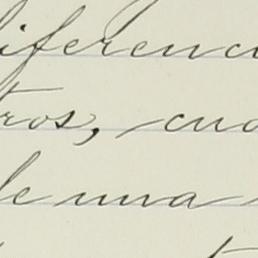 diferenci
tros, cua
de una